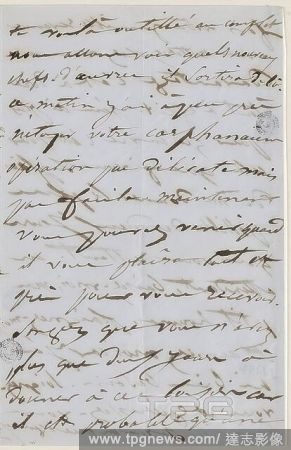 te voilà outillé au complet
nous allons voir quels nouveaux
chefs d'œuvre il sortira de là.
ce matin j'ai à peu près
nettoyé votre capharnaum
opération peu délicate mais
peu facile. maintenant
vous pouvez venir quand
il vous plaira tout est
prêt pour vous recevoir.
Songez que vous n'avez
plus que dix jours à
donner à ce loisir car
il est probable que
TPG
www.tpgnews.com / 達志影像